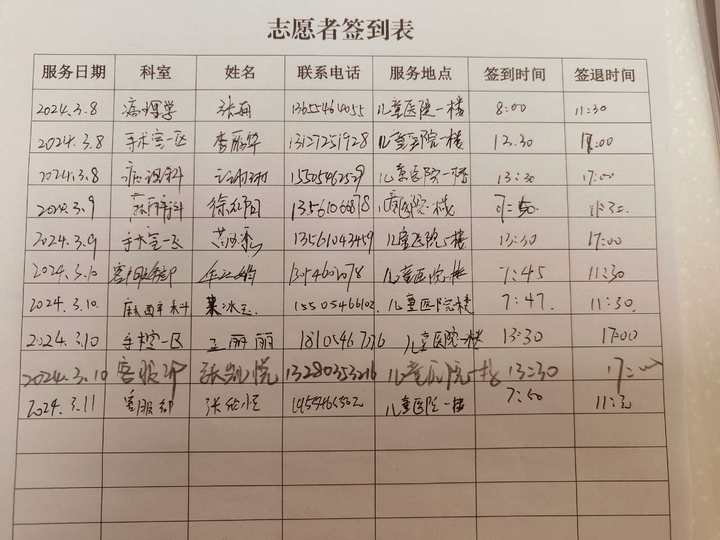 志愿者签到表
服务日期 科室 姓名 联系电话 服务地点 签到时间 签退时间
2024.3.8 病理学 张 儿童医院一楼 8:00 11:30
2024.3.8 手术室一区 李丽华 13127251928 儿童医院一楼 12.30 17:00
2024.3.8 病理科 15505462529 儿童医院一楼 13:30 17:00
2024.3.9 徐 13561066878 儿童医院一楼 7:50
2024.3.9 手术室一区 13561043459 儿童医院一楼 13:30 17:00
2024.3.10 客服部 儿童医院一楼 7:45 11:30
2024.3.10. 麻醉手术科 15505466102 儿童医院一楼 7:47. 11:30.
2024.3.10 手术室一区 王丽丽 儿童医院一楼 13:30 17:00
2024.3.10 客服部 张凯悦 13280353216 儿童医院一楼 13:30 17:00
2024.3.11 客服部 张 儿童医院一楼 7:50 11:30